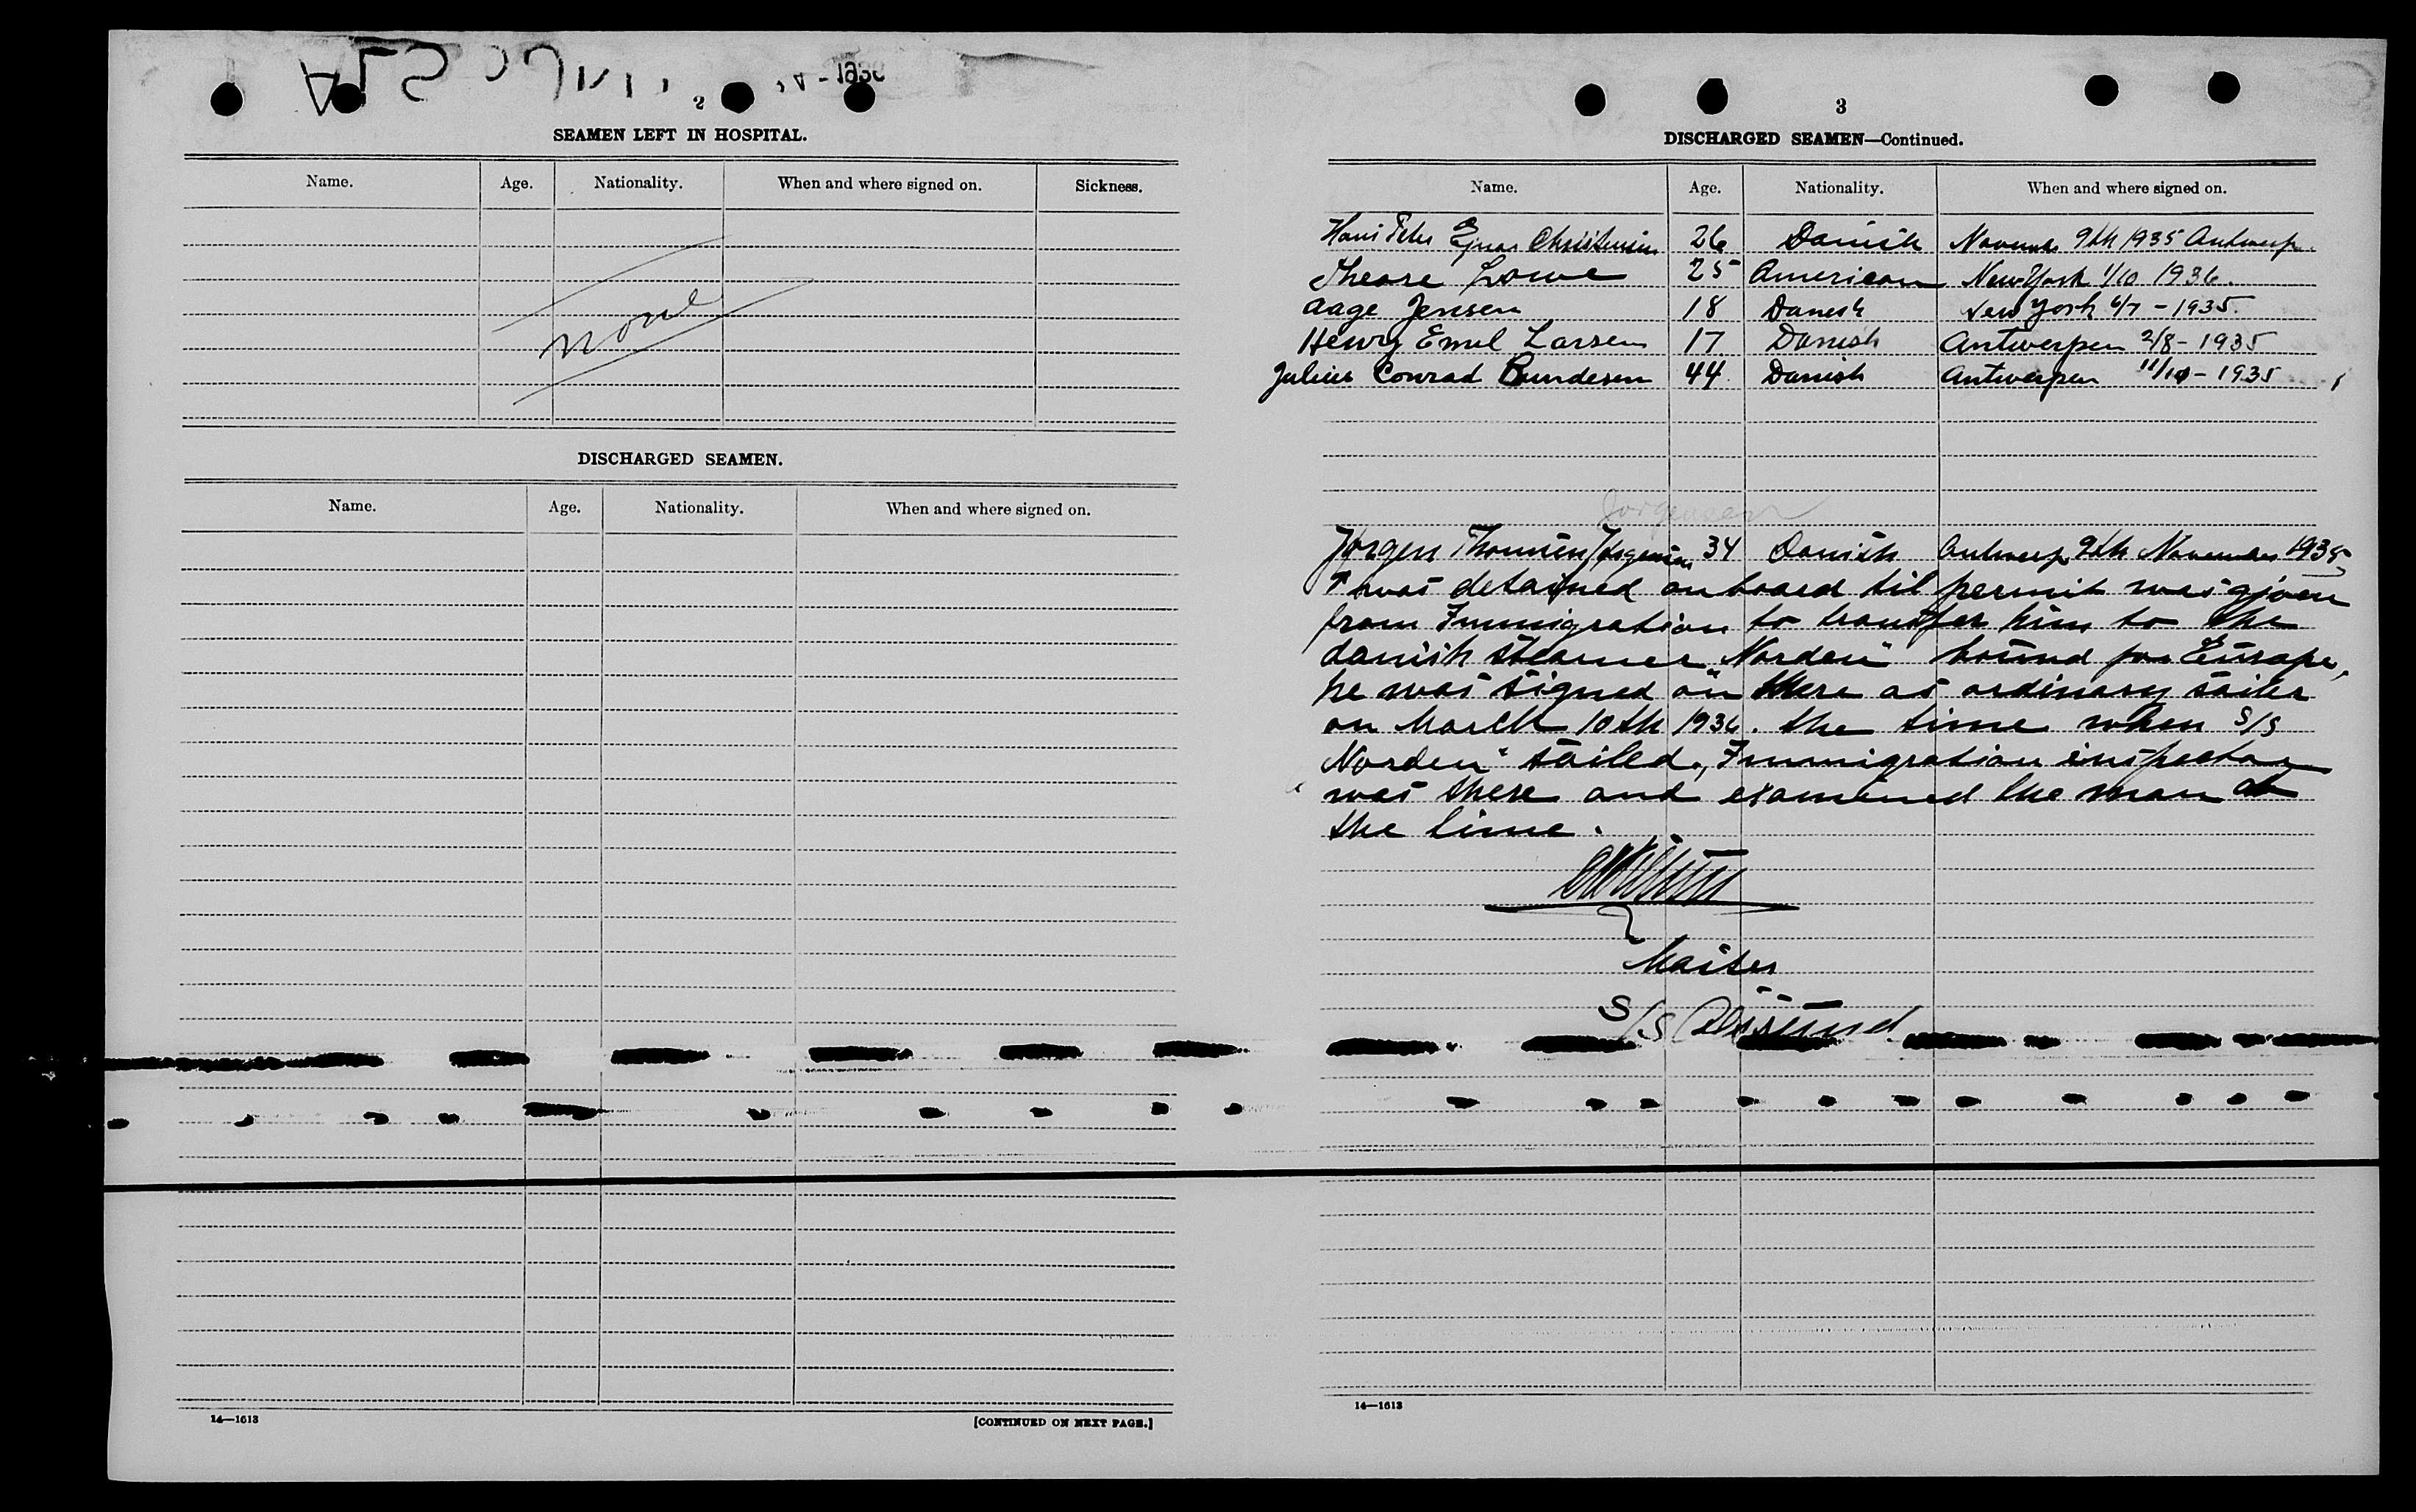 2
SEAMEN LEFT IN HOSPITAL.
Name. Age. Nationality. When and where signed on. Sickness.
none
DISCHARGED SEAMEN.
Name. Age. Nationality. When and where signed on.
14—1613 [CONTINUED ON NEXT PAGE.]
3
DISCHARGED SEAMEN—Continued.
Name. Age. Nationality. When and where signed on.
Hans Peter Ejnar Christensen 26 Danish November 9th 1935 Antwerp.
Lowe 25 American New York 1/10 1936.
Aage Jensen 18 Danish New York 6/7 - 1935.
Henry Emil Larsen 17 Danish Antwerpen 2/8 - 1935
Julius Conrad Bundesen 44 Danish Antwerpen 11/10 - 1935
Jorgensen
Jørgen Thomsen Jørgensen 34 Danish Antwerp 9th November 1935
was detained on board til permit was given
from Immigration to transfer him to the
danish steamer "Norden" bound for Europe,
he was signed on there as ordinary sailer
on March 10th 1936. the time when S/S
Norden" sailed, Immigration inspector
was there and examined the man at
the time.
Master
S/S
14—1613